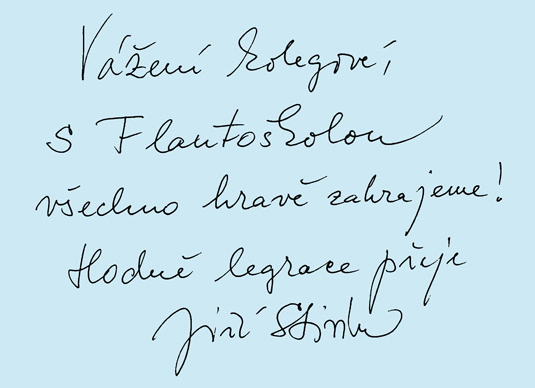 Vážení kolegové,
s Flautoškolou
všechno hravě zahrajeme!
Hodně legrace přeje
Jiří Stivín